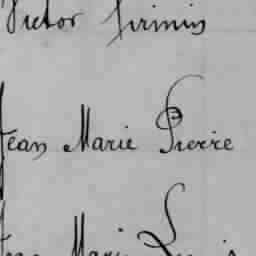 Victor Firmin
Jean Marie Pierre
Jean Marie Louis